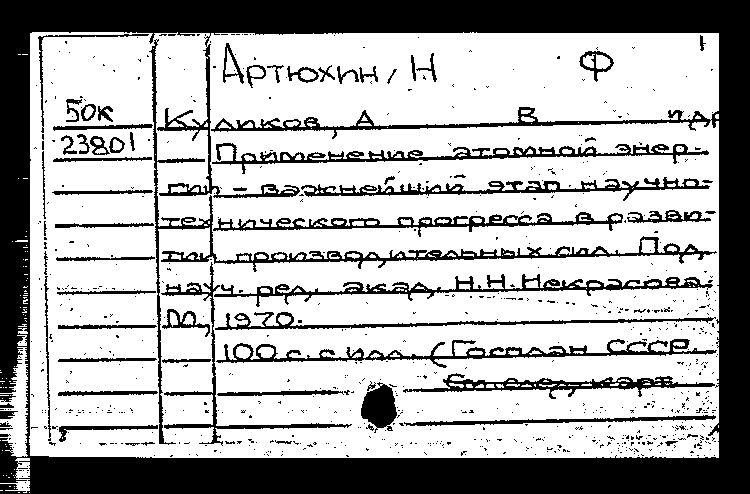 Артюхин, Н Ф
50к
Куликов, А В и др
23801
Применение атомной энер-
гии – важнейший этап научно-
технического прогресса в разви-
тии производительных сил. Под
науч. ред. акад. Н.Н.Некрасова.
М., 1970.
100 с. с илл. (Госплан СССР.
См след. карт